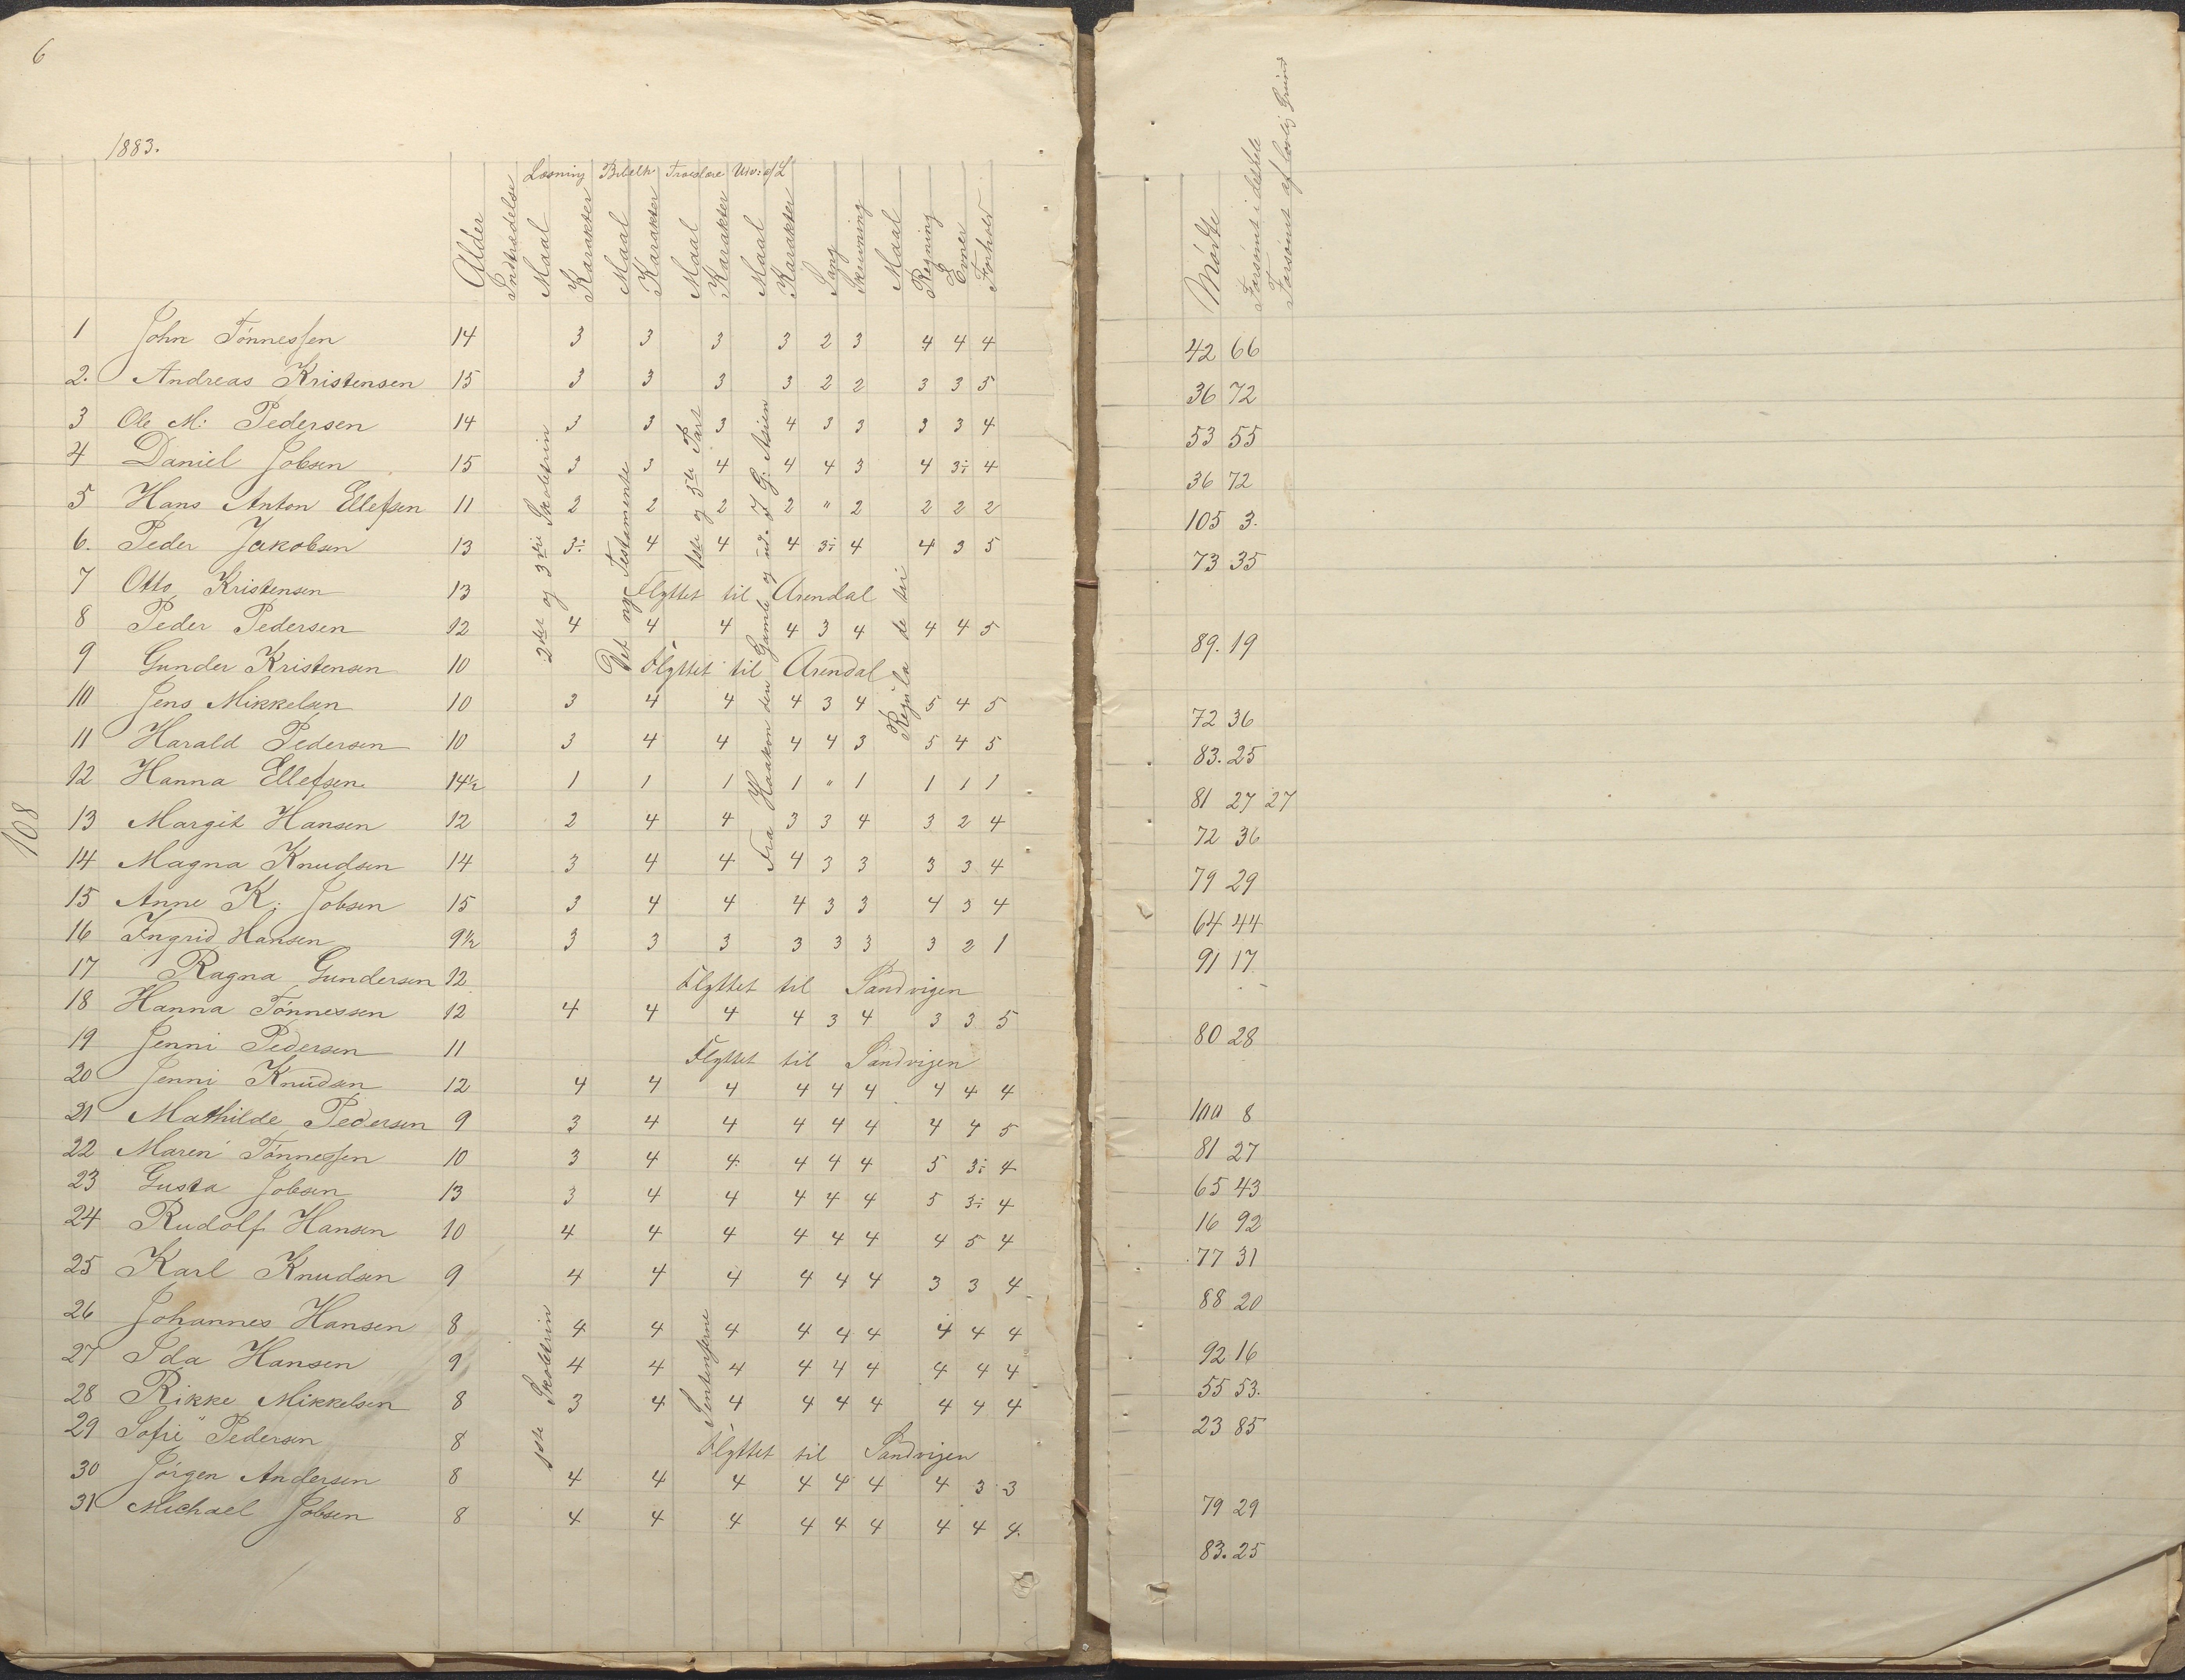 6
1883.
Læsning Bibelh Troeslære Udv: af L
Alder Indtrædelse Maal Karakter Maal Karakter Maal Karakter Maal Karakter Sang Skrivning Maal Regning Evner Forhold
Mødte Forsømt i det hele Forsømt af lovlig Grund
108
2den og 3die Skoletrin
Det nye Testamente
1ste og 3die Part
Fra Haakon den Gamle og ud. J. G: Asien
Regula de tri
1 John Tønnessen 14 3 3 3 3 2 3 4 4 4 42 66
2. Andreas Kristensen 15 3 3 3 3 2 2 3 3 5 36 72
3 Ole M: Pedersen 14 3 3 3 4 3 3 3 3 4 53 55
4 Daniel Jobsen 15 3 3 4 4 4 3 4 3÷ 4 36 72
5 Hans Anton Ellefsen 11 2 2 2 2 " 2 2 2 2 105 3.
6. Peder Jakobsen 13 3÷ 4 4 4 3÷ 4 4 3 5 73 35
7 Otto Kristensen 13 Flyttet til Arendal
8 Peder Pedersen 12 4 4 4 4 3 4 4 4 5 89. 19
9 Gunder Kristensen 10 Flyttet til Arendal
10 Jens Mikkelsen 10 3 4 4 4 3 4 5 4 5 72 36
11 Harald Pedersen 10 3 4 4 4 4 3 5 4 5 83. 25
12 Hanna Ellefsen. 14½ 1 1 1 1 " 1 1 1 1 81 27 27
13 Margit Hansen 12 2 4 4 3 3 4 3 2 4 72 36
14 Magna Knudsen 14 3 4 4 4 3 3 3 3 4 79 29
15 Anne K: Jobsen 15 3 4 4 4 3 3 4 3 4 64 44
16 Ingrid Hansen 9½ 3 3 3 3 3 3 3 2 1 91 17
17 Ragna Gundersen 12 Flyttet til Sandvigen
18 Hanna Tønnessen 12 4 4 4 4 3 4 3 3 5 80 28
19 Jenni Pedersen 11 Flyttet til Sandvigen
20 Jenni Knudsen 12 4 4 4 4 4 4 4 4 4 100 8
21 Mathilde Pedersen 9 3 4 4 4 4 4 4 4 5 81 27
22 Maren Tønnessen 10 3 4 4 4 4 4 5 3÷ 4 65 43
23 Gusta Jobsen 13 3 4 4 4 4 4 5 3÷ 4 16 92
24 Rudolf Hansen 10 4 4 4 4 4 4 4 5 4 77 31
25 Karl Knudsen 9 4 4 4 4 4 4 3 3 4 88 20
1ste Skoletrin
Sentenserne
26 Johannes Hansen 8 4 4 4 4 4 4 4 4 4 92 16
27 Ida Hansen 9 4 4 4 4 4 4 4 4 4 55 53.
28 Rikke Mikkelsen 8 3 4 4 4 4 4 4 4 4 23 85
29 Sofie Pedersen 8 Flyttet til Sandvigen
30 Jørgen Andersen 8 4 4 4 4 4 4 4 3 3 79 29
31 Michael Jobsen 8 4 4 4 4 4 4 4 4 4. 83. 25